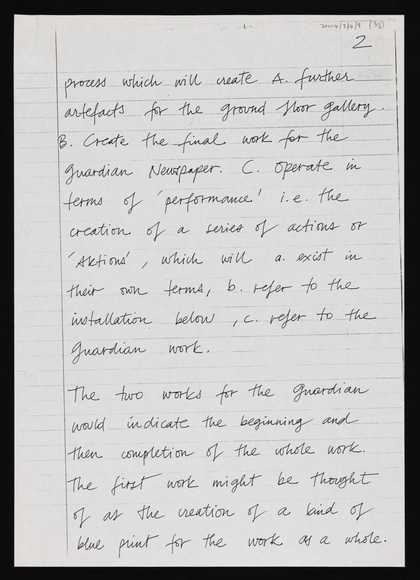 2
process which will create A. further
artefacts for the ground floor gallery.
B. Create the final work for the
Guardian Newspaper. C. Operate in
terms of 'performance' i.e. the
creation of a series of actions or
'Aktions', which will a. exist in
their own terms, b. refer to the
installation below, c. refer to the
Guardian work.
The two works for the Guardian
would indicate the beginning and
then completion of the whole work.
The first work might be thought
of as the creation of a kind of
blue print for the work as a whole.